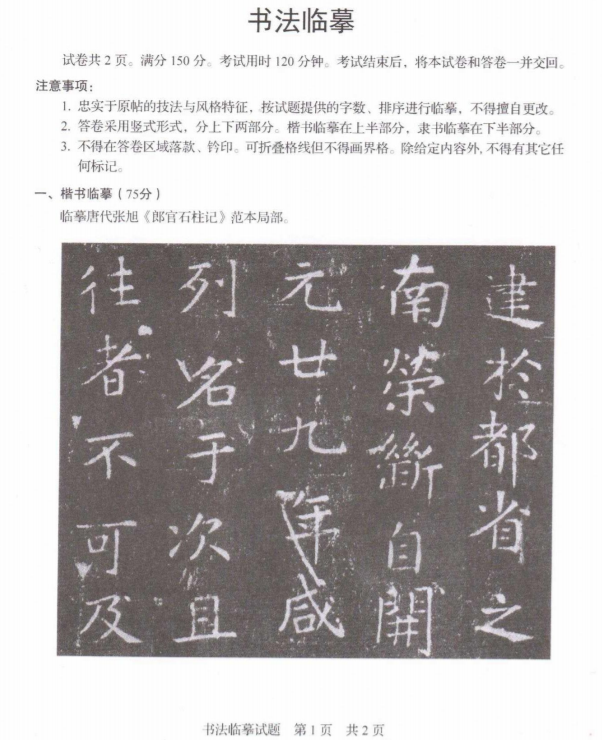 书法临摹
试卷共 2 页。满分 150 分。考试用时 120 分钟。考试结束后，将本试卷和答卷一并交回。
注意事项：
1. 忠实于原帖的技法与风格特征，按试题提供的字数、排序进行临摹，不得擅自更改。
2. 答卷采用竖式形式，分上下两部分。楷书临摹在上半部分，隶书临摹在下半部分。
3. 不得在答卷区域落款、钤印。可折叠格线但不得画界格。除给定内容外, 不得有其它任
何标记。
一、楷书临摹（75分）
临摹唐代张旭《郎官石柱记》范本局部。
建於都省之
南榮斷自開
元廿九年咸
列名于次且
往者不可及
书法临摹试题 第1页 共2页